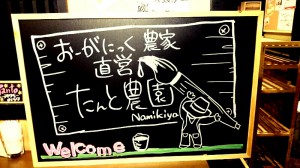 おーがにっく 農家
直営
たんと農園
Namikiya
Welcome